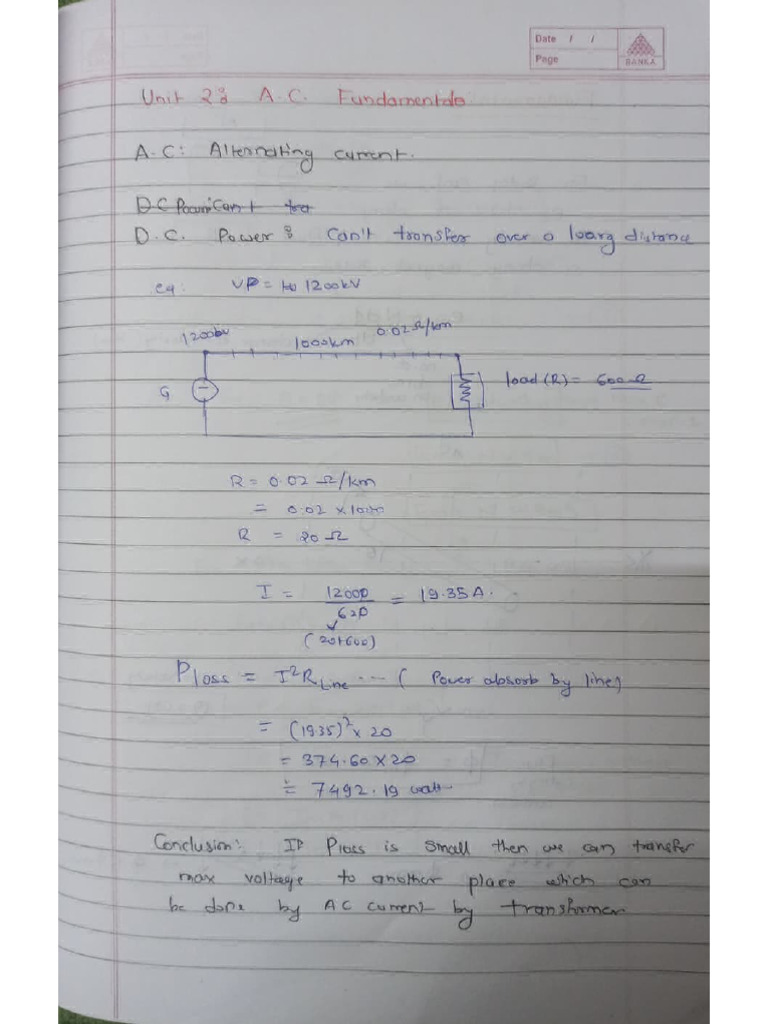 Date / /
Page
BANKA
Unit 2: A.C. Fundamentals
A.C: Alternating current.
DC Power Can't tra
D.C. Power : Can't transfer over a loarg distance
eg: VP = 1200kV
1200kv 1000km 0.02 Ω/km
G
load (R) = 600Ω
R = 0.02 Ω/km
= 0.02 x 1000
R = 20 Ω
I = 12000 / 620 = 19.35A.
(20+600)
Ploss = I²R Line ... ( Power absorb by line)
= (19.35)² x 20
= 374.60 x 20
= 7492.19 watt
Conclusion: If Ploss is small then we can transfer
max voltage to another place which can
be done by AC current by transformer